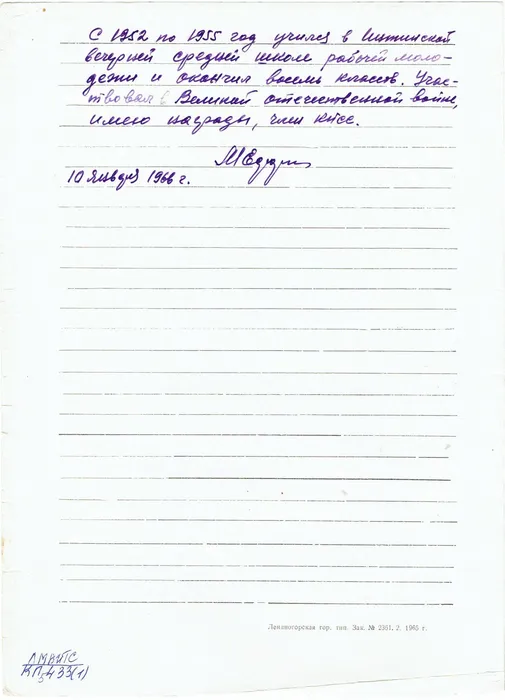 С 1952 по 1955 год учился в Интинской
вечерней средней школе рабочей моло-
дежи и окончил восемь классов. Учас-
твовал в Великой отечественной войне,
имею награды, член КПСС.
10 января 1966 г.
Лениногорская гор. тип. Зак. № 2381, 2. 1965 г.
КП 5433(1)